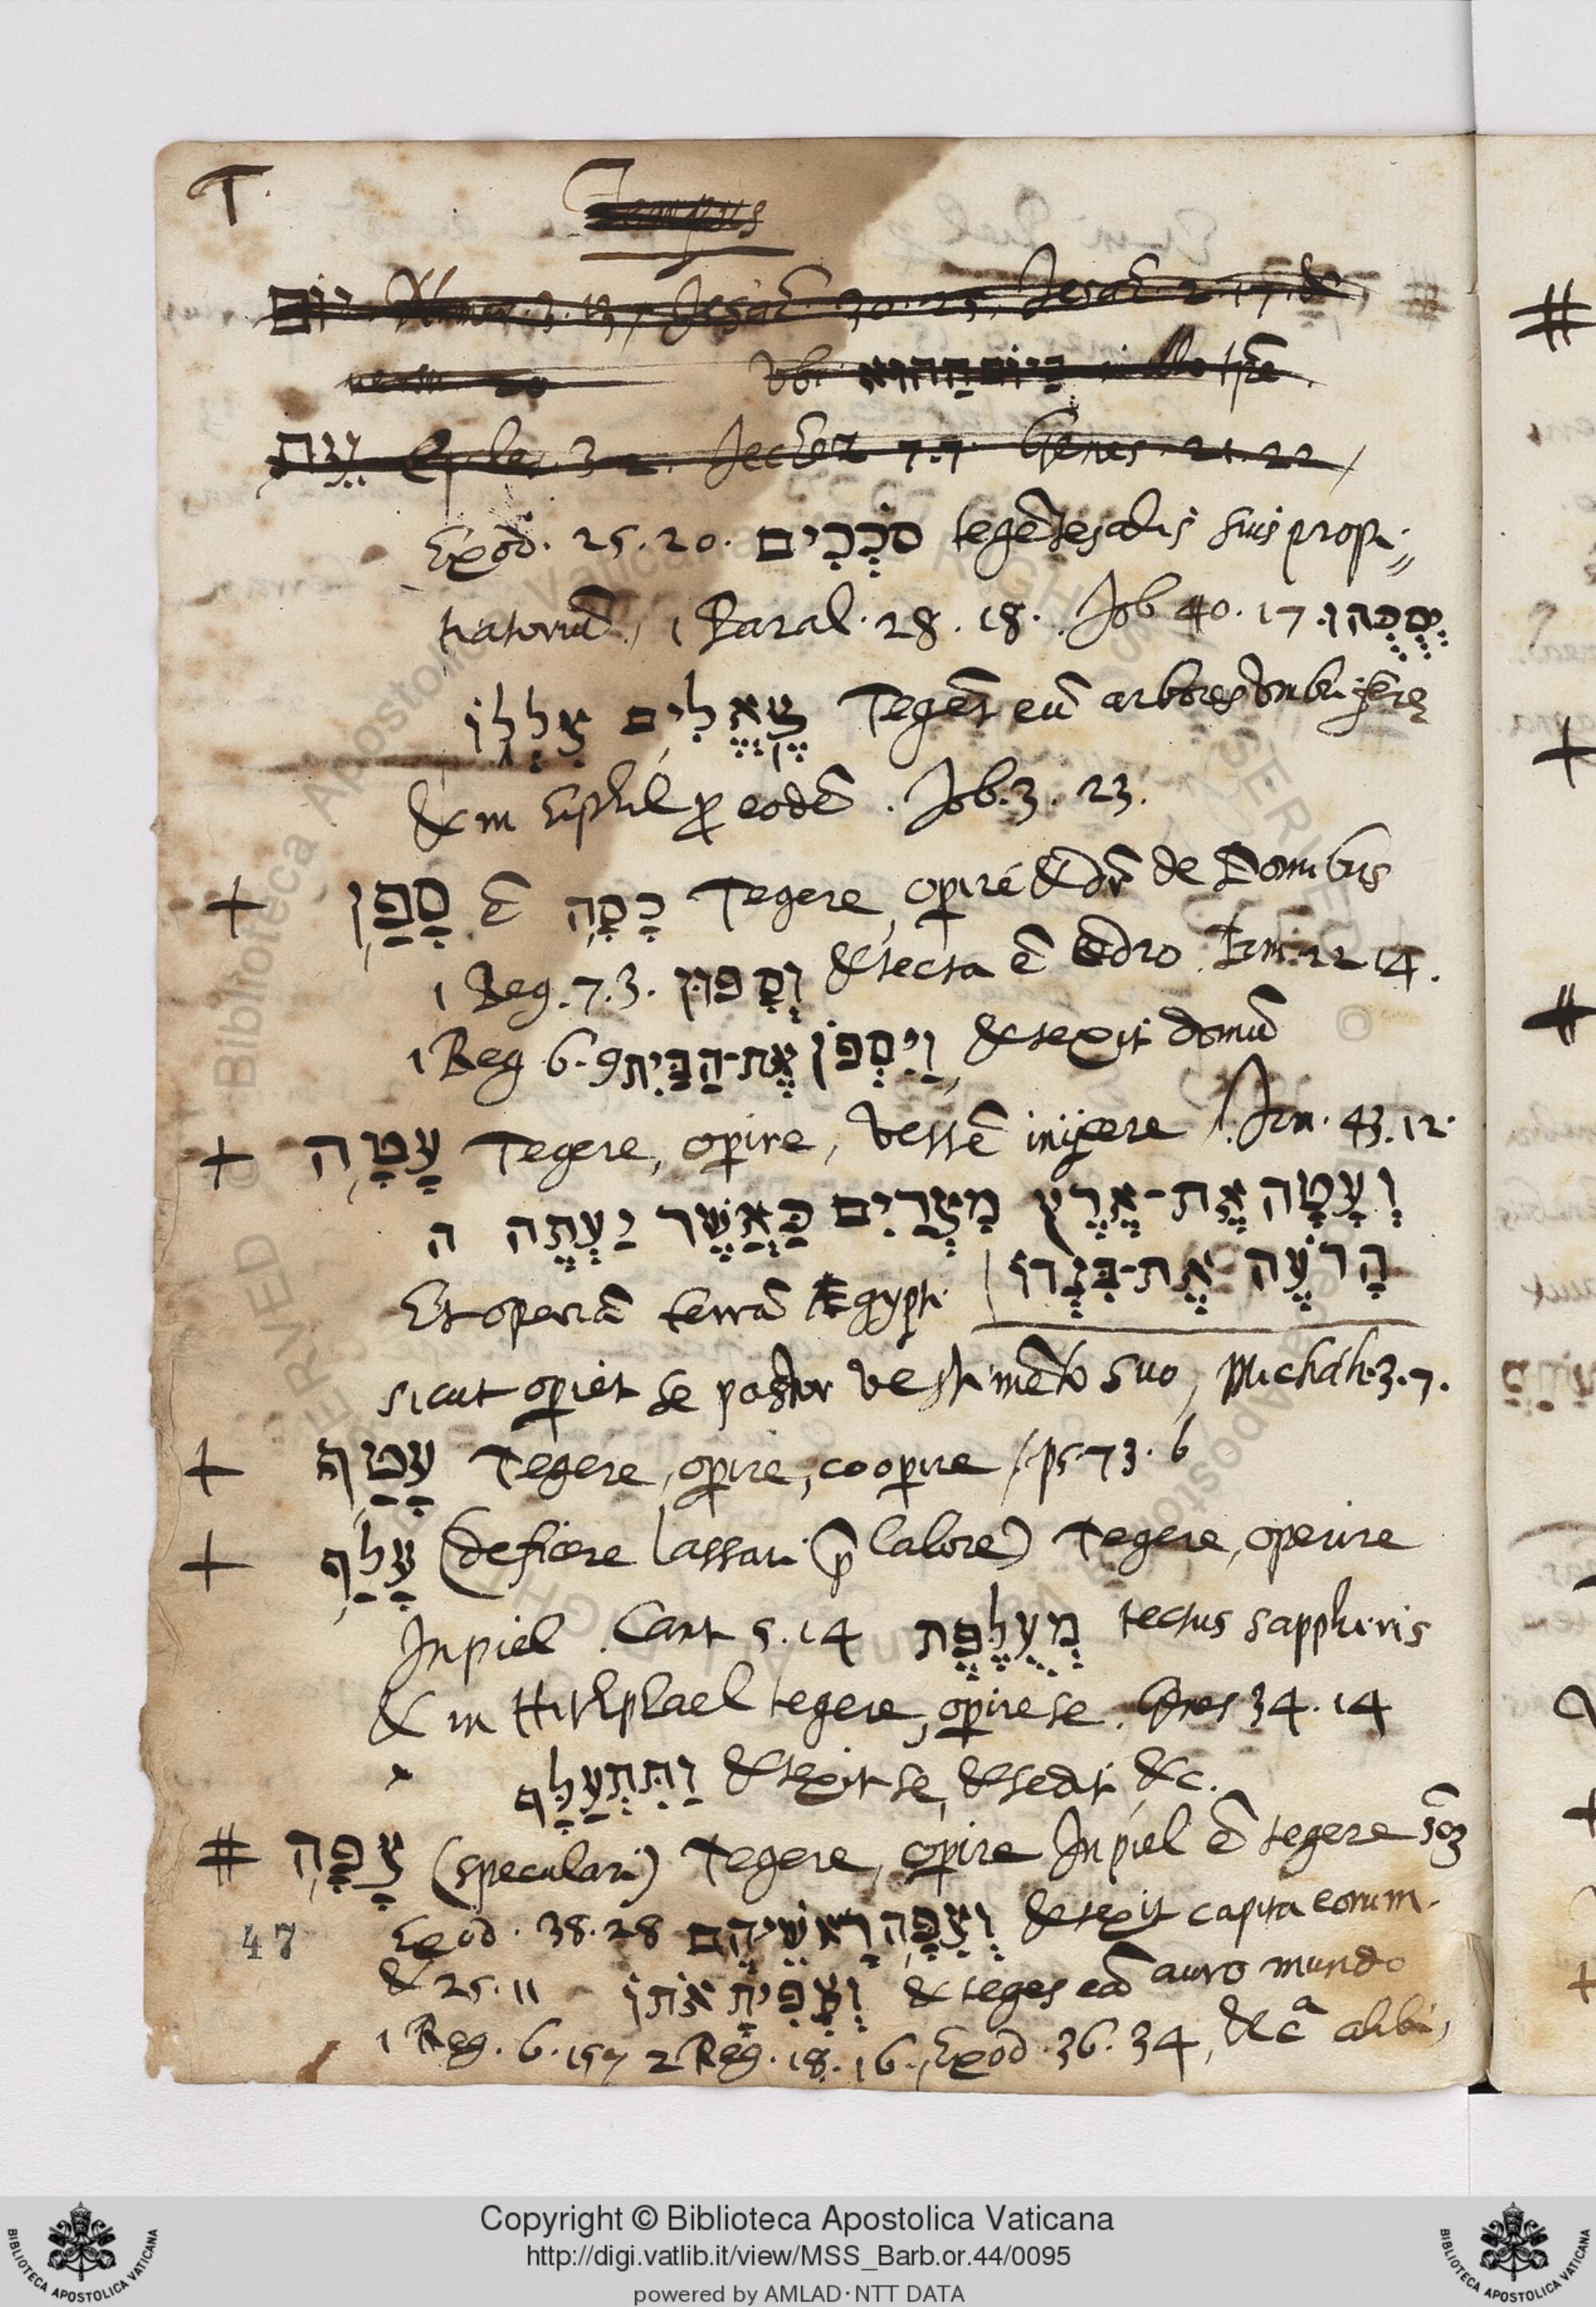 T.
Tempus
יום Numer. 3. 13, Jesai. 30. 25, Jesai. 2. 17. &
versu 20 Vbi בַּיוֹם הַהוּא in illo tp̄re.
עֵת 3 2. 7. 7. Genes. 21. 22
Exod. 25. 20. סֹכְכִים tegētes alis suis propi„
tiatoriū, 1 Paral. 28. 18. Job 40. 17. יְסֻכֻּהוּ
צֶאֱלִים צִלֲלוֹ Tegēt eū arbores ūmbriferę
& in Hiphil p eodē. Job. 3. 23.
+ סָפַן ē כָּסָה Tegere, opire & dr̄ de Domibus
1 Reg. 7. 3. וְסָפוּן & tecta ē cedro. Jerm. 22 14.
1 Reg. 6. 9 וַיִּסְפֹּן אֶת-הַבַּיִת, & texit domū
+ עָטָה Tegere, opire, Vestē inijcere /. Jrm. 43. 12.
וְעָטָה אֶת-אֶרֶץ מִצְרַיִם כַּאֲשֶׁר יַעְטֶה ה
הָרֹעֶה אֶת-בִּגְדוֹ
Et operiā terrā Ægypti
sicut opiet se pastor vestimēto suo, Michāh. 3. 7.
+ עָטַף Tegere, opire, coopire /. ps. 73. 6
+ עָלַף (deficere lassari p̄ labore) Tegere, operire
In piel. Cant 5. 14 מְעֻלֶּפֶת tectus sapphiris
& in Hithphael tegere, opire se. Genes 34. 14
וַתִּתְעַלָּף & texit se, & sedit &c.
# צָפָה (speculari) Tegere, opire In piel ē tegere
47
Exod. 38. 28 וְצִפָּה רָאשֵׁיהֶם & texit capita eorum.
& 25. 11 וְצִפִּיתָ אֹתוֹ & teges eā auro mundo
1 Reg. 6. 15, 2 Reg. 18. 16, Exod. 36. 34, & cª alibi,
Copyright © Biblioteca Apostolica Vaticana
http://digi.vatlib.it/view/MSS_Barb.or.44/0095
powered by AMLAD·NTT DATA
BIBLIOTECA APOSTOLICA VATICANA
BIBLIOTECA APOSTOLICA VATICANA